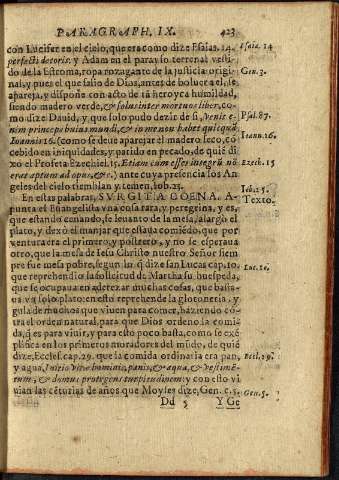 PARAGRAPH. IX. 423
con Lucifer en el cielo, que era como dize Psaias. 14. Psaia. 14
perfecti decoris: y Adam en el parayso terrenal vesti-
do de la Estroma, ropa rozagante de la justicia origi- Gen. 3.
nal, y pues el que salio de Dios, antes de boluer a el, se
apareja, y dispone con acto de tā heroyca humildad,
siendo madero verde, & solus inter mortuos liber, co-
mo dize Dauid, y que solo pudo dezir de si, Venit e- Psal. 87.
nim princeps huius mundi, & in me non habet quicquā
Ioannis 16. (como se deue aparejar el madero seco, cō Ioann. 16.
cebido en iniquidades, y parido en pecado, de quié di
xo el Profeta Ezechiel. 15. Etiam cum esset integrū nō Ezech. 15
erat aptum ad opus, &c.) ante cuya presencia los An
geles del cielo tiemblan y temen, Iob. 25. Iob. 25.
En estas palabras, SVRGIT A COENA. A- Texto.
punta el Euangelista vna cosa rara, y peregrina, y es,
que estando comiendo, se leuanto de la mesa, alargò el
plato, y dexò el manjar que estaua comiédo, que por
ventura era el primero, y postrero, y no se esperaua
otro, que la mesa de Iesu Christo nuestro Señor siem
pre fue mesa pobre, segun lo q̄ dize san Lucas cap. 10. Luc. 10.
que reprehendio la solicitud de Martha su huespeda,
que se ocupaua en aderezar muchas cosas, que basta-
ua vn solo plato: en esto reprehende la glotoneria, y
gula de muchos que viuen para comer, haziendo cō
tra el orden natural, para que Dios ordeno la comi-
da, q̄ es para viuir, y para esto poco basta, como se exē
plifica en los primeros moradores del mūdo, de quié
dize, Ecclesi. cap. 29. que la comida ordinaria era pan, Eccl. 29.
y agua, Initiū vitæ hominis, panis, & aqua, & vestimē-
tum, & domus protegens turpitudinem: y con esto vi
uian las céturias de años que Moyses dize, Gen. c. 5. Gen. 5.
Dd 5 Y Ge